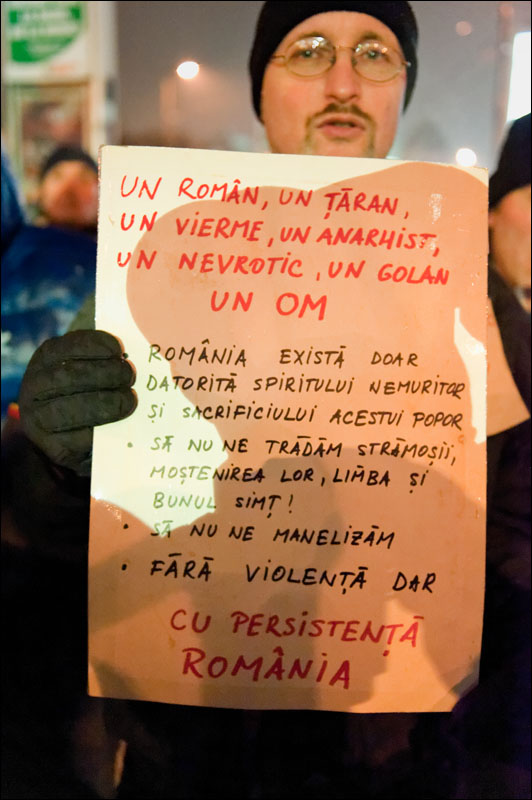 UN ROMÂN, UN ȚĂRAN,
UN VIERME, UN ANARHIST,
UN NEVROTIC, UN GOLAN
UN OM
• ROMÂNIA EXISTĂ DOAR
DATORITĂ SPIRITULUI NEMURITOR
ȘI SACRIFICIULUI ACESTUI POPOR
• SĂ NU NE TRĂDĂM STRĂMOȘII,
MOȘTENIREA LOR, LIMBA ȘI
BUNUL SIMȚ!
• SĂ NU NE MANELIZĂM
• FĂRĂ VIOLENȚĂ DAR
CU PERSISTENȚĂ
ROMÂNIA